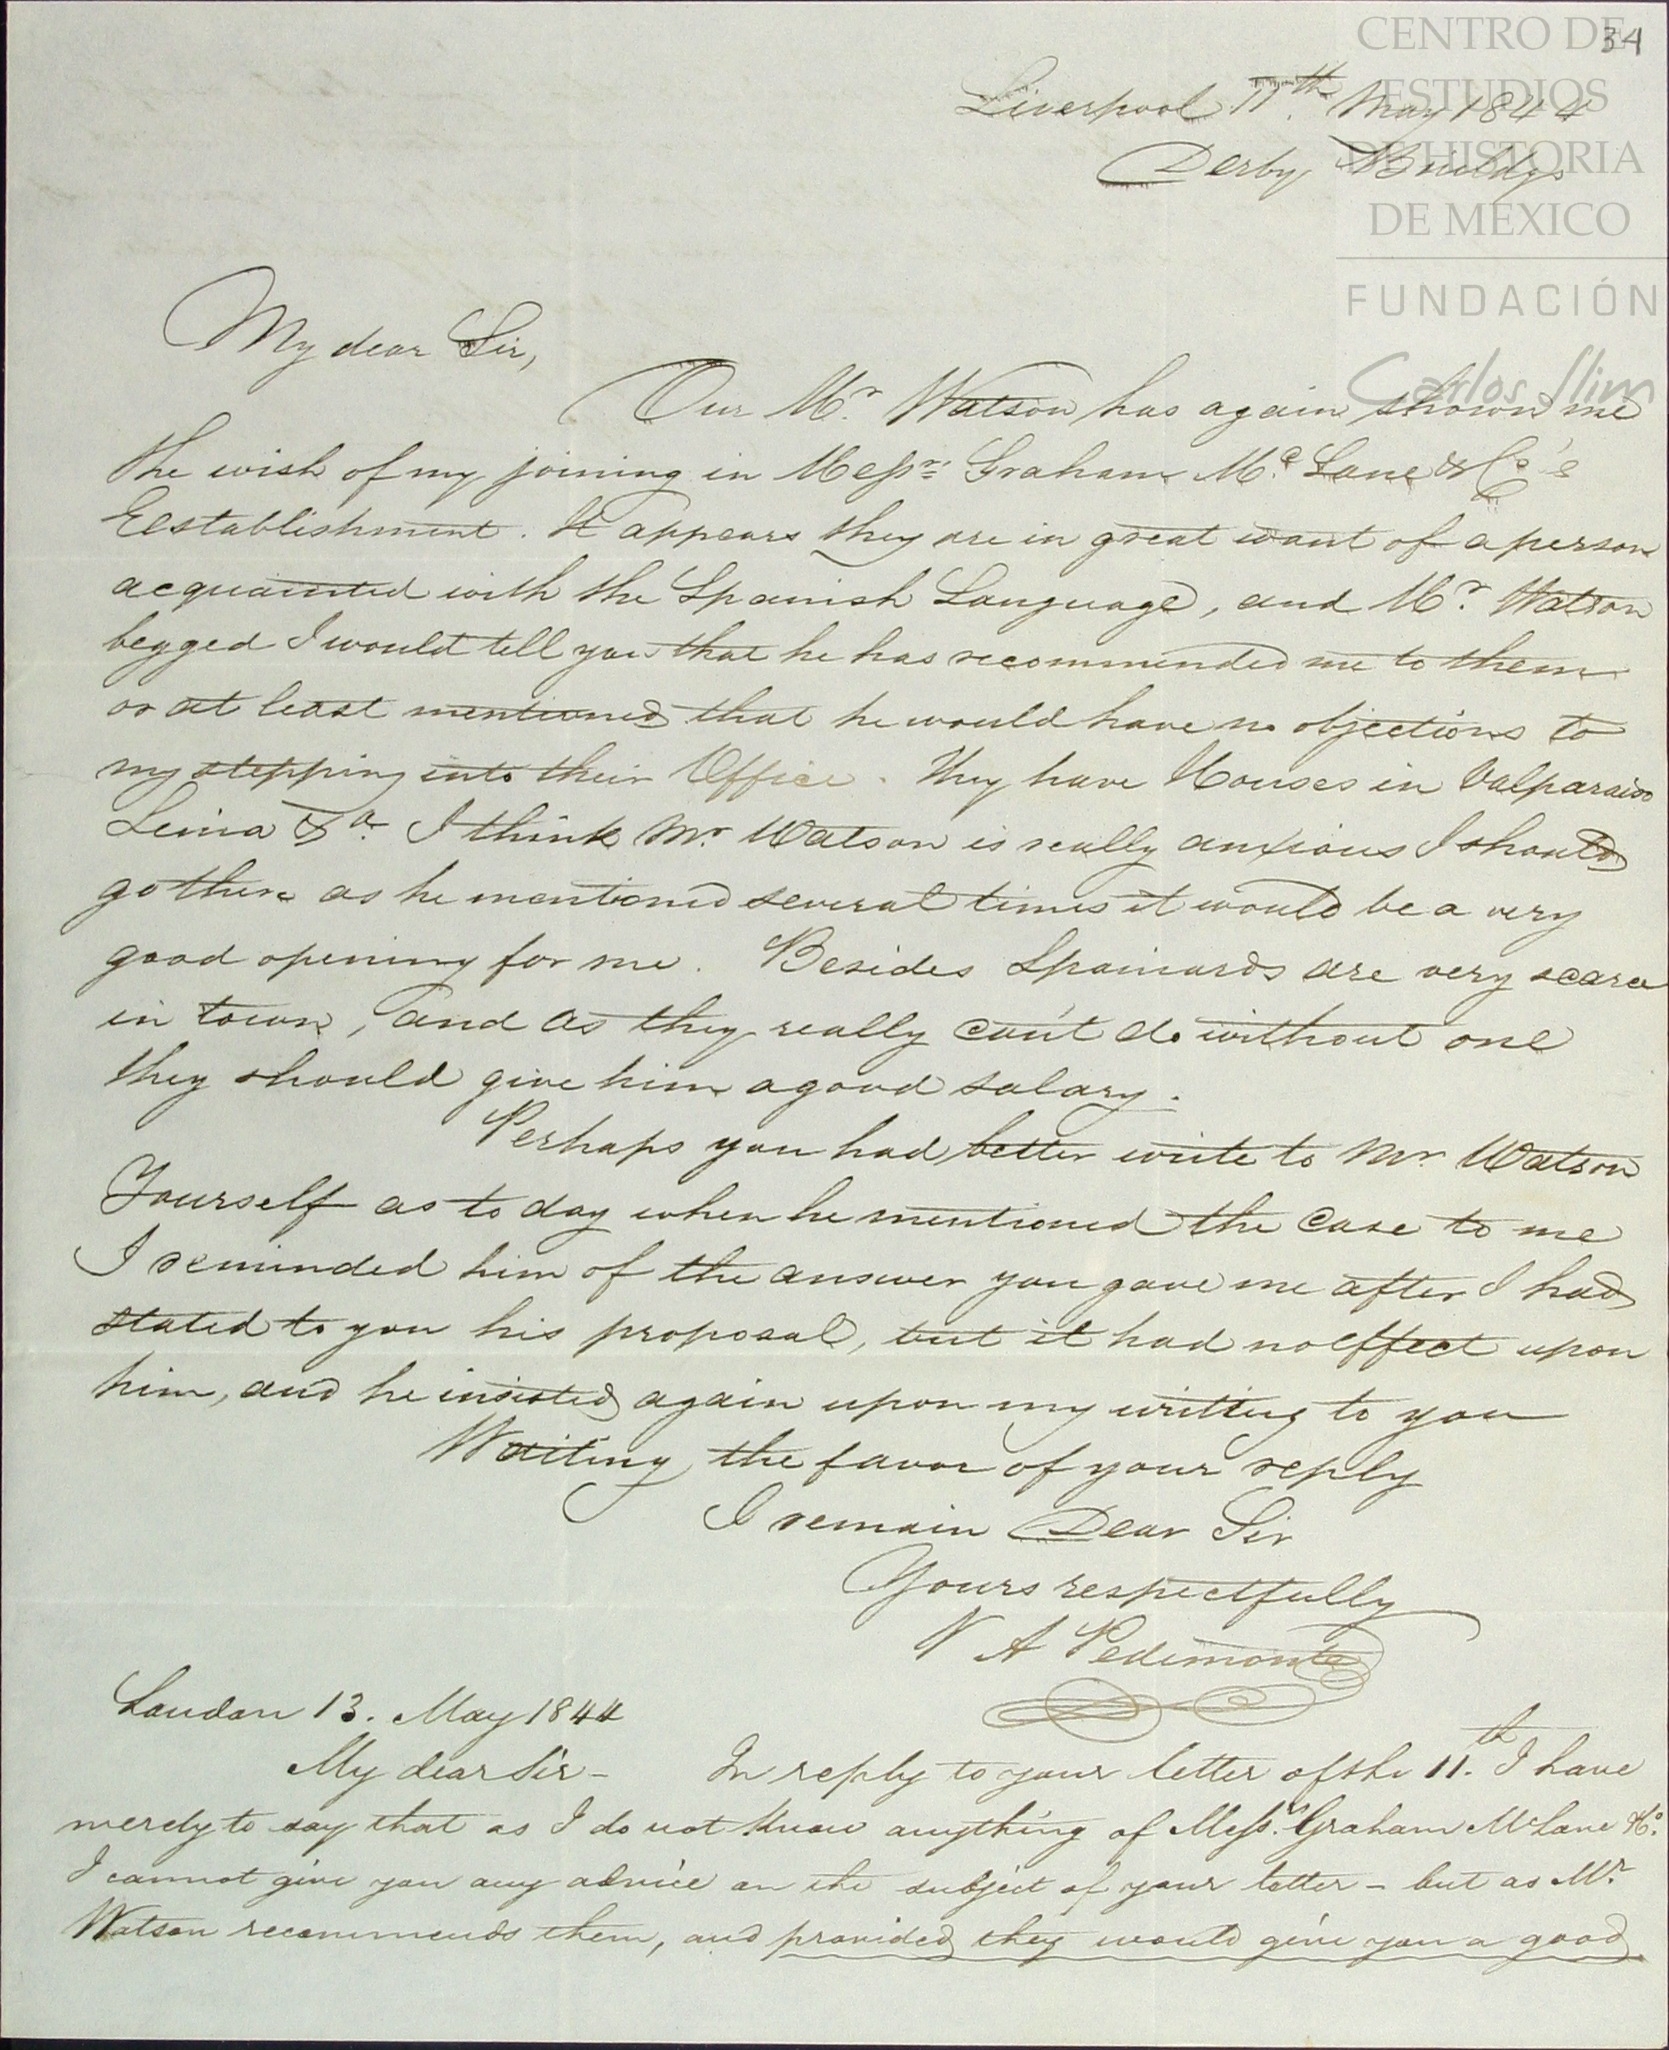 34
CENTRO DE
ESTUDIOS
DE HISTORIA
DE MÉXICO
FUNDACIÓN
Carlos Slim
Liverpool 11th. May 1844
Derby Buildgs
My dear Sir,
Our Mr. Watson has again shown me
the wish of my joining in Messrs. Graham Mc. Lane & Co's
Eestablishment. It appears they are in great want of a person
acquainted with the Spanish Language, and Mr. Watson
begged I would tell you that he has recommended me to them
or at least mentioned that he would have no objections to
my stepping into their Office. They have Houses in Valparaiso
Lima &a. I think Mr. Watson is really anxious I should
go there as he mentioned several times it would be a very
good opening for me. Besides Spainards are very scarce
in town, and as they really can't do without one
they should give him a good salary.
Perhaps you had better write to Mr Watson
Yourself as to day when he mentioned the case to me
I reminded him of the answer you gave me after I had
stated to you his proposal, but it had no effect upon
him, and he insisted again upon my writting to you
Waiting the favor of your reply
I remain Dear Sir
Yours respectfully
N A Pedemonte
London 13. May 1844
My dear Sir - In reply to your letter of the 11.th I have
merely to say that as I do not know anything of Messrs. Graham McLane & Co.
I cannot give you any advice on the subject of your letter - but as Mr.
Watson recommends them, and provided they would give you a good